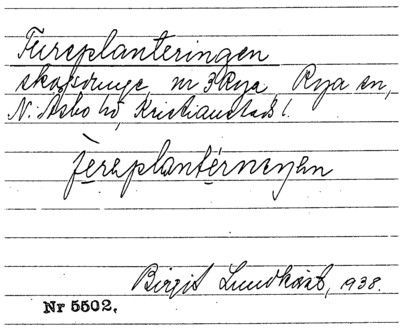 Fureplanteringen
skogsdunge, nr 3 Rya, Rya sn,
N. Åsbo hd, Kristianstads l.
fereplantérneṉen
Birgit Lundkvist, 1938.
Nr 5502.